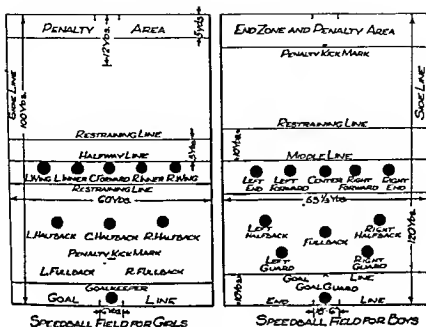 PENALTY AREA
12 YDS.
5 YDS.
SIDE LINE
100 YDS.
RESTRAINING LINE
HALFWAY LINE
5 YDS.
L.WING L.INNER C.FORWARD R.INNER R.WING
RESTRAINING LINE
60 YDS.
L.HALFBACK C.HALFBACK R.HALFBACK
PENALTY KICK MARK
L.FULLBACK R.FULLBACK
GOALKEEPER
GOAL LINE
6 YDS.
SPEEDBALL FIELD FOR GIRLS
END ZONE AND PENALTY AREA
PENALTY KICK MARK
SIDE LINE
RESTRAINING LINE
10 YDS.
MIDDLE LINE
LEFT END LEFT FORWARD CENTER RIGHT FORWARD RIGHT END
53⅓ YDS.
120 YDS.
LEFT HALFBACK RIGHT HALFBACK
FULLBACK
LEFT GUARD RIGHT GUARD
GOAL LINE
GOAL GUARD
10 YDS.
END LINE
18'-6"
SPEEDBALL FIELD FOR BOYS